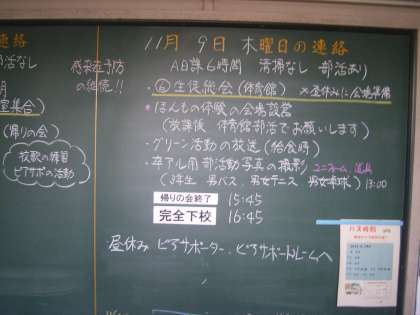 連絡
活なし
月
室集合)
(帰りの会)
校歌の練習
ピアサポの活動
感染症予防
の継続!!
11月 9日 木曜日の連絡
AB課6時間 清掃なし 部活あり
⑥生徒総会(体育館) ※昼休みに会場準備
・ほんもの体験の会場設営
(放課後 体育館部活でお願いします)
・グリーン活動の放送(給食時)
・卒アル用部活動写真の撮影 ユニフォーム 道具
(3年生 男バス、男女テニス 男女卓球) 13:00
帰りの会終了 15:45
完全下校 16:45
昼休み ピアサポーター、ピアサポートルームへ
バス時刻